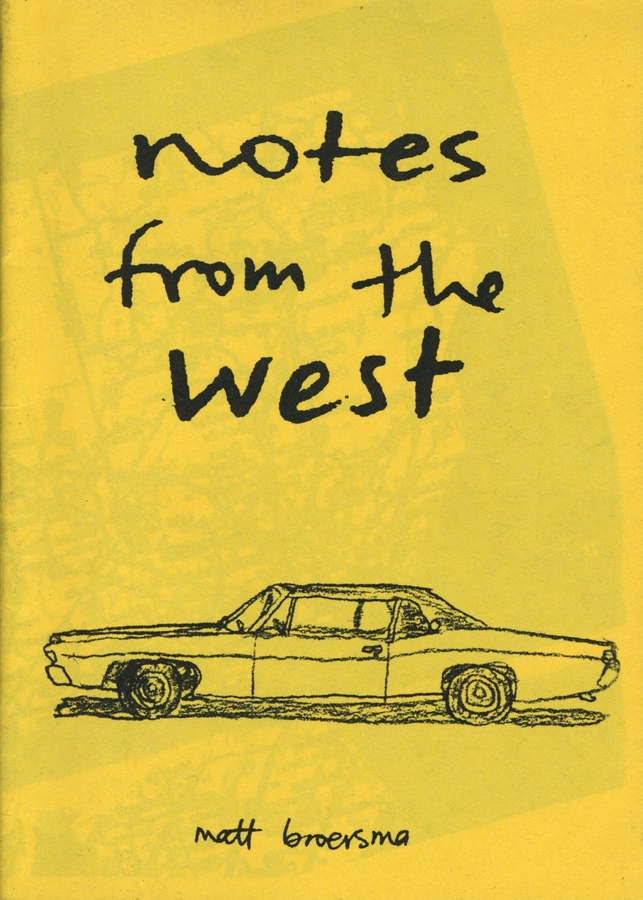 notes
from the
west
matt broersma